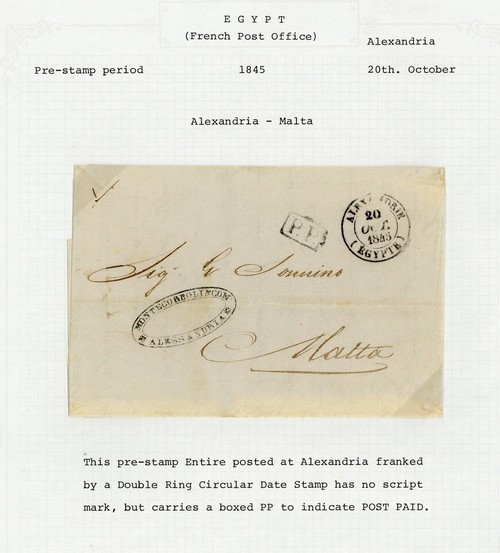 EGYPT
(French Post Office)
Alexandria
Pre-stamp period 1845 20th. October
Alexandria - Malta
ALEXANDRIE
20
OCT.
1845
(EGYPTE)
PP
Sig G Sonnino
MONTECORBOLI & COM
ALESSANDRIA
Malta
This pre-stamp Entire posted at Alexandria franked
by a Double Ring Circular Date Stamp has no script
mark, but carries a boxed PP to indicate POST PAID.